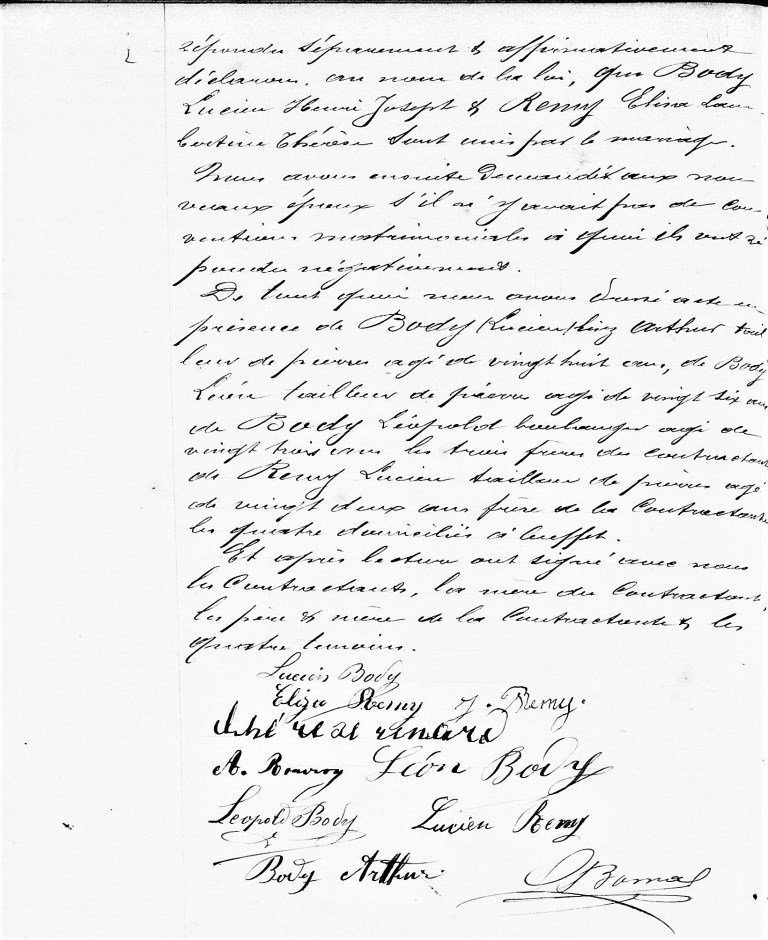 répondu séparement & affirmativement
déclarons, au nom de la loi, que Body
Lucien Henri Joseph & Remy Eliza Lam-
bertine Thérèse sont unis par le mariage.
Nous avons ensuite demandé aux nou
veaux époux s'il n'y avait pas de con
ventions matrimoniales à quoi ils ont ré
pondu négativement.
De tout quoi nous avons dressé acte en
présence de Body (Lucien) Arthur tail
leur de pierres agé de vingt huit ans, de Body
Léon tailleur de pierres agé de vingt six ans
de Body Léopold boulanger agé de
vingt trois ans les trois frères du contractant
de Remy Lucien tailleur de pierres agé
de vingt deux ans frère de la Contractante
les quatre domiciliés à
Et après lecture ont signé avec nous
les Contractants, la mère du Contractant,
les père & mère de la Contractante & les
quatre temoins.
Lucien Body
Eliza Remy J. Remy.
A. Léon Body
Léopold Body Lucien Remy
Body Arthur